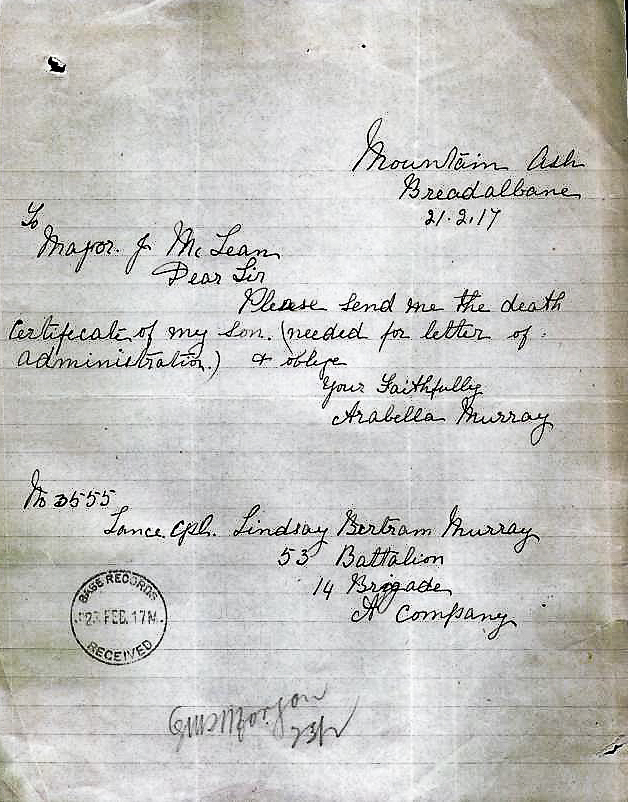 Mountain Ash
Breadalbane
21.2.17
To
Major. J. McLean
Dear Sir
Please send me the death
Certificate of my son. (needed for letter of
administration.) & oblige
Your Faithfully
Arabella Murray
No 3555
Lance. Cpl. Lindsay Bertram Murray
53 Battalion
14 Brigade
A Company
BASE RECORDS
23 FEB. 17
RECEIVED
23/2